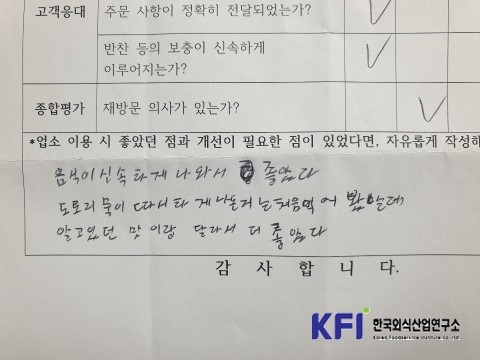 고객응대
주문 사항이 정확히 전달되었는가?
반찬 등의 보충이 신속하게
이루어지는가?
종합평가
재방문 의사가 있는가?
*업소 이용 시 좋았던 점과 개선이 필요한 점이 있었다면, 자유롭게 작성하
음식이 신속하게 나와서 좋았다
도토리묵이 따시하게 나온거는 처음먹어 봤는데
알고있던 맛이랑 달라서 더 좋았다
감 사 합 니 다.
KFI 한국외식산업연구소
Korea Foodservice Institute co., ltd.